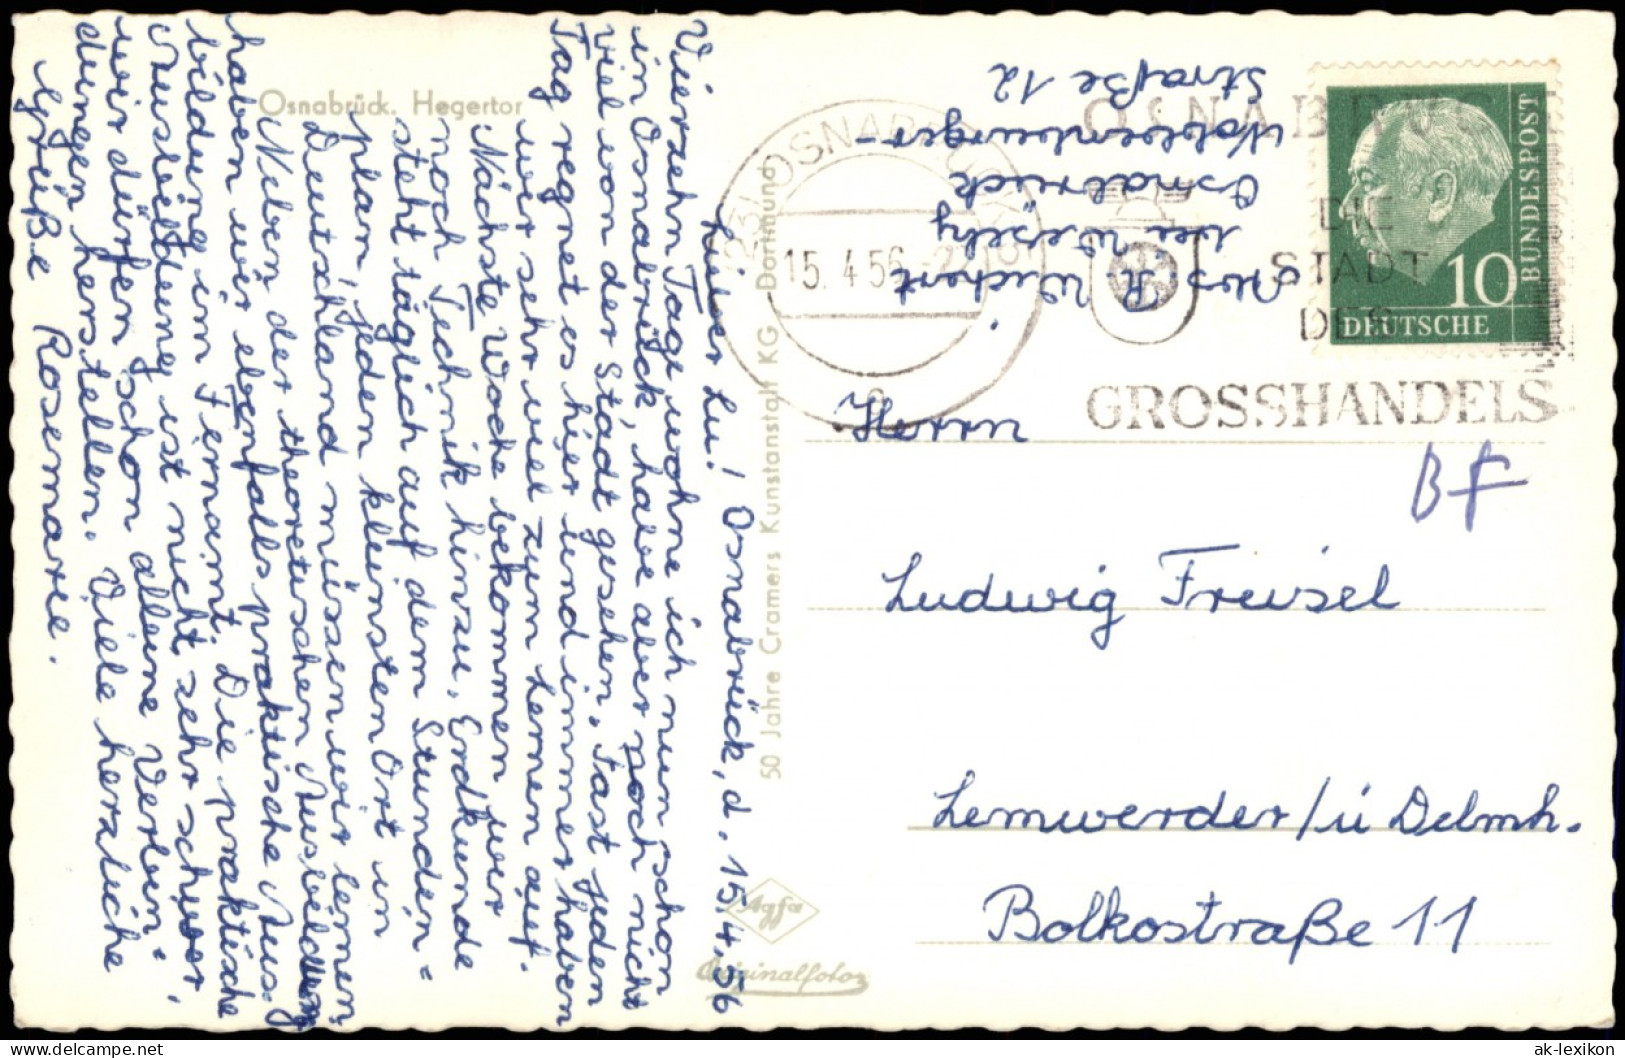 Osnabrück. Hegertor
Lieber Lu! Osnabrück, d. 15.4.56
Vierzehn Tage wohne ich nun schon
in Osnabrück, habe aber noch nicht
viel von der Stadt gesehen. Fast jeden
Tag regnet es hier und immer haben
wir sehr viel zum Lernen auf.
Nächste Woche bekommen wir
noch Technik hinzu. Erdkunde
steht täglich auf dem Stunden=
plan, jeden kleinsten Ort in
Deutschland müssen wir lernen.
Neben der theoretischen Ausbildung
haben wir ebenfalls praktische Aus=
bildung im Fernamt. Die praktische
Ausbildung ist nicht sehr schwer,
wir dürfen schon alleine Verbin=
dungen herstellen. Viele herzliche
Grüße Rosemarie.
50 Jahre Cramers Kunstanstalt KG Dortmund
Agfa
Originalfoto
Abs R. Wichert
Osnabrück
Straße 12
(23) OSNABRÜCK
15.4.56
c
OSNABRÜCK
DIE
STADT
DES
GROSSHANDELS
DEUTSCHE
BUNDESPOST
10
Herrn
Bf
Ludwig Freisel
Lemwerder/ü Delmh.
Bolkostraße 11
delcampe.net
ak-lexikon